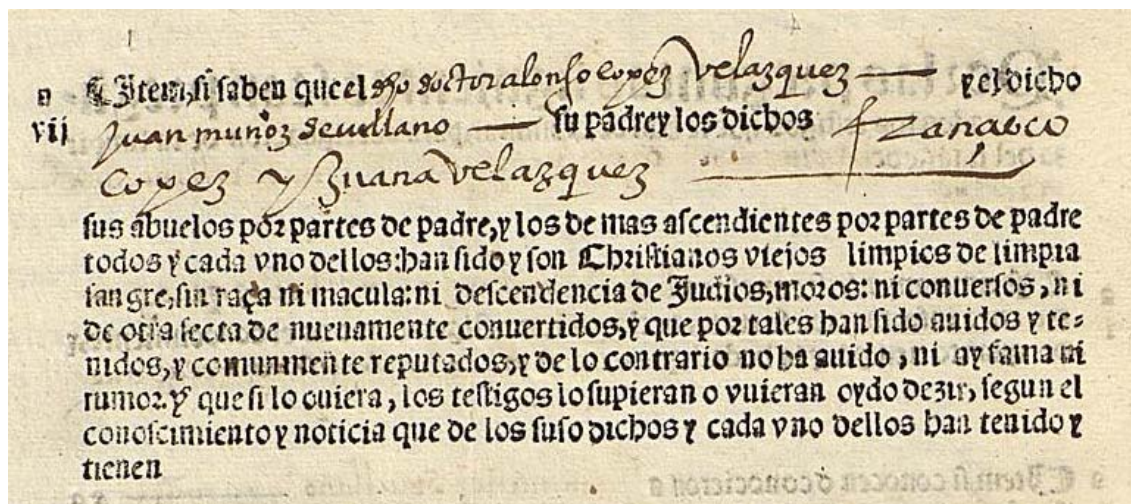 ¶ Item, si saben que el dho doctor alonso lopez Velazquez y el dicho
vij Juan muñoz sevillano su padre y los dichos franco
lopez y Juana Velazquez
sus abuelos por partes de padre, y los de mas ascendientes por partes de padre
todos y cada vno dellos: han sido y son Christianos viejos limpios de limpia
sangre, sin raça ni macula: ni descendencia de Judios, moros: ni conuersos, ni
de otra secta de nueuamente conuertidos, y que por tales han sido auidos y te=
nidos, y comunmente reputados, y de lo contrario no ha auido, ni ay fama ni
rumor. Y que si lo ouiera, los testigos lo supieran o vuieran oydo dezir, segun el
conoscimiento y noticia que de los suso dichos y cada vno dellos han tenido y
tienen